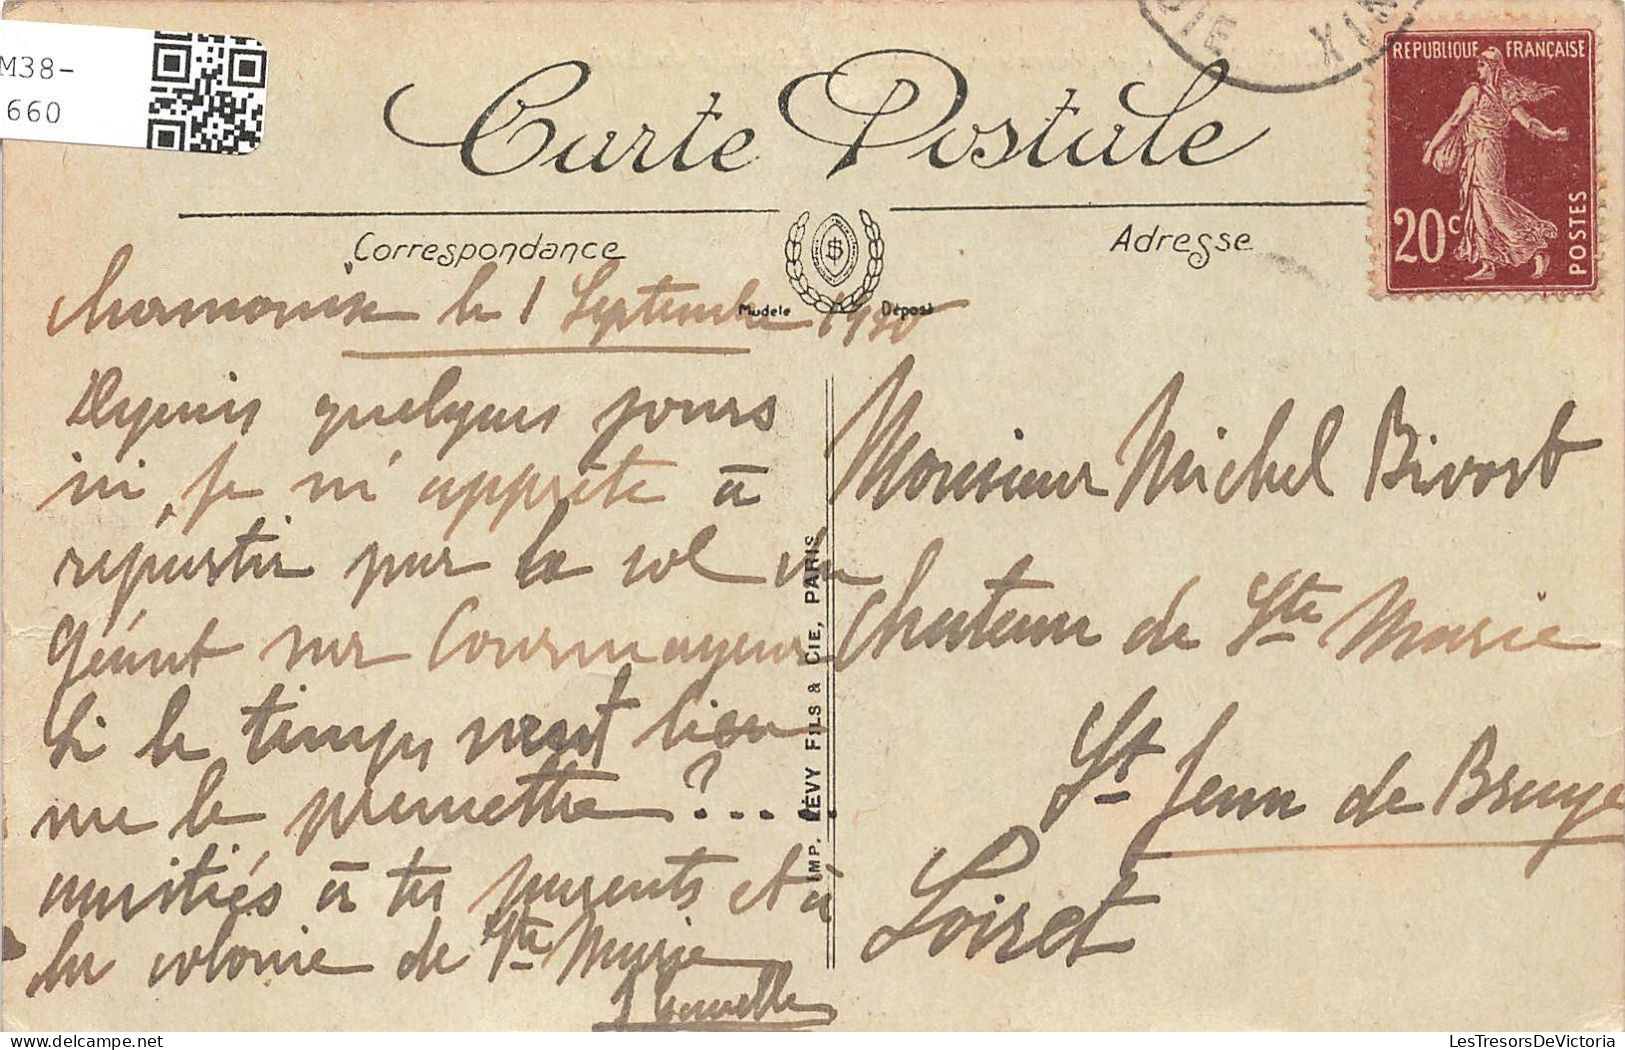 M38-
660
JIE XIX
REPUBLIQUE FRANÇAISE
20c
POSTES
Carte Postale
Correspondance
Adresse
Modèle Déposé
Chamonix le 1 Septembre 1930
Depuis quelques jours
ici je m'apprête à
repartir par le col du
Géant sur Courmayeur
Si le temps veut bien
me le permettre ?....
amitiés à tes parents et à
la colonie de Ste Marie
IMP. LÉVY FILS & CIE, PARIS
Monsieur Michel Bivort
Chateau de Ste Marie
St Jean de Braye
Loiret
LesTresorsDeVictoria.com